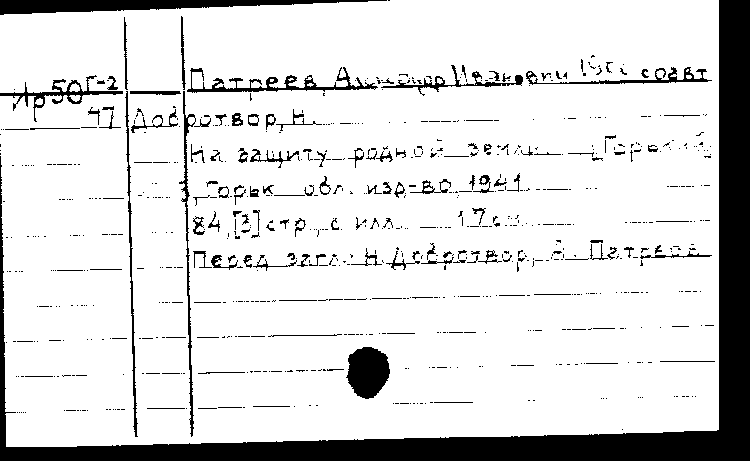 Ир50 Г-2 Патреев, Александр Иванович соавт
47 Добротвор, Н.
На защиту родной земли. [Горький]
Горьк обл. изд-во, 1941.
84, [3] стр., с илл. 17 см
Перед загл.: Н. Добротвор, А. Патреев